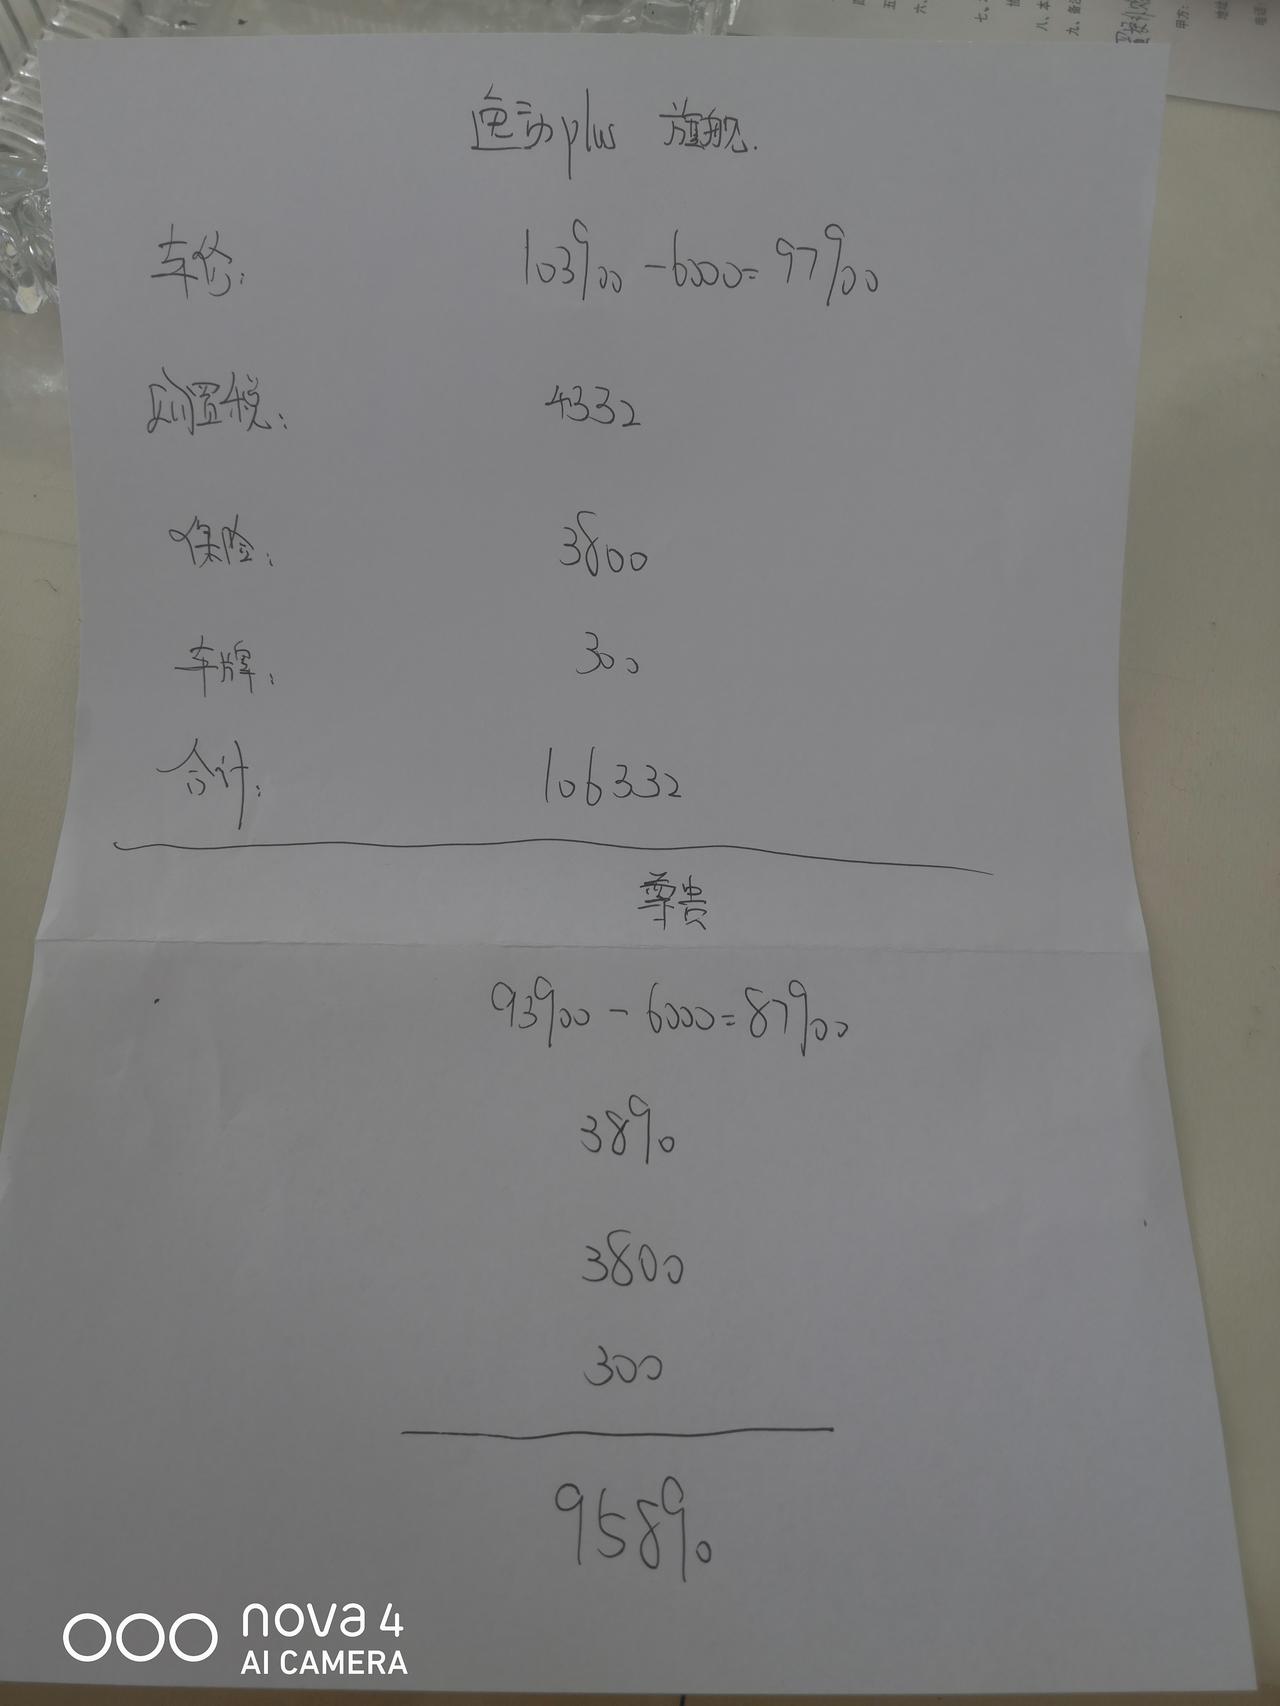 逸动plus 旗舰.
车价: 103900-6000=97900
购置税: 4332
保险: 3800
车牌: 300
合计: 106332
尊贵
93900-6000=87900
3890
3800
300
95890
nova 4
AI CAMERA